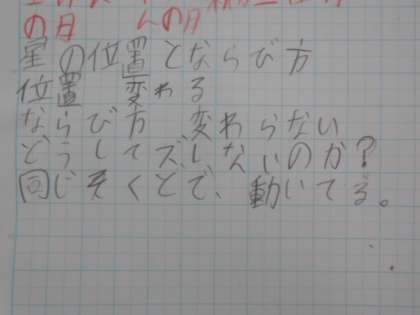 の月 んの月
星の位置とならび方
位置 変わる
ならび方 変わらない
どうしてズレないのか?
同じそくどで、動いてる。